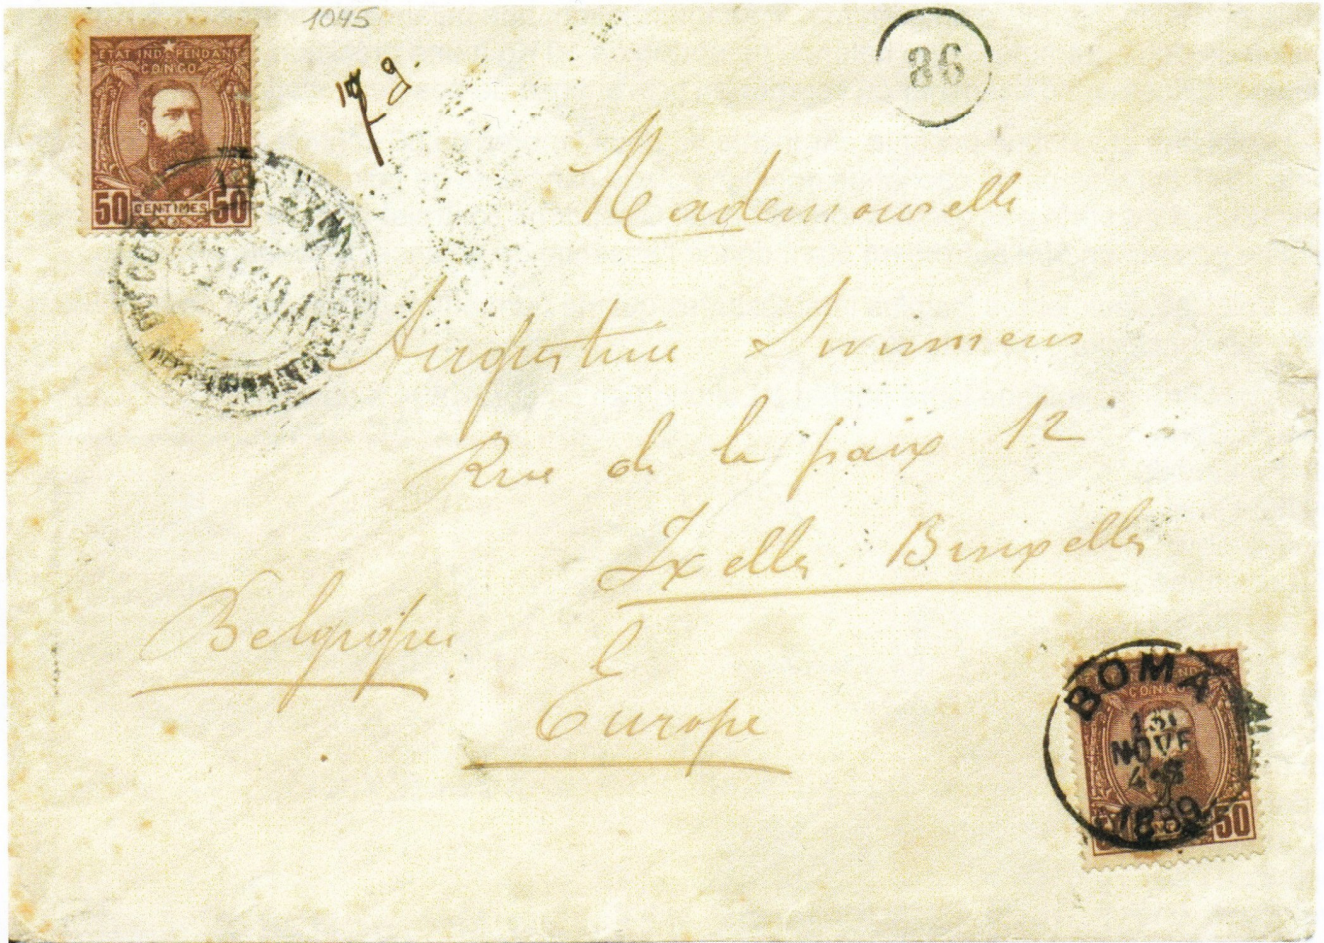 1045
86
ETAT INDEPENDANT
CONGO
50 CENTIMES 50
Mademoiselle
Augustine
Rue de la paix 12
Ixelles. Bruxelles
Belgique
Europe
BOMA
NOVE
1889
CONGO
50